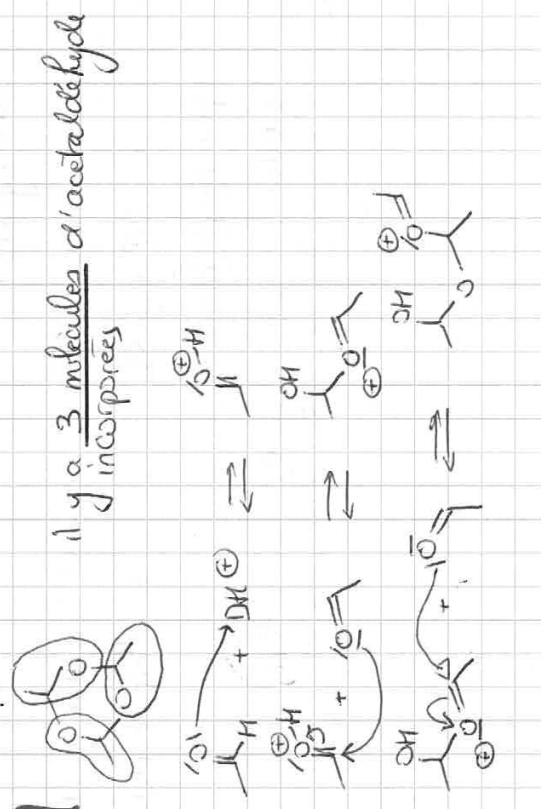 il y a 3 molécules d'acétaldéhyde
incorporées
O O O
O + DH ⊕ ⇌ ⊕ O-H
H
⊕ O-H + O ⇌ OH O ⊕
OH O ⊕ + O ⇌ OH O O ⊕